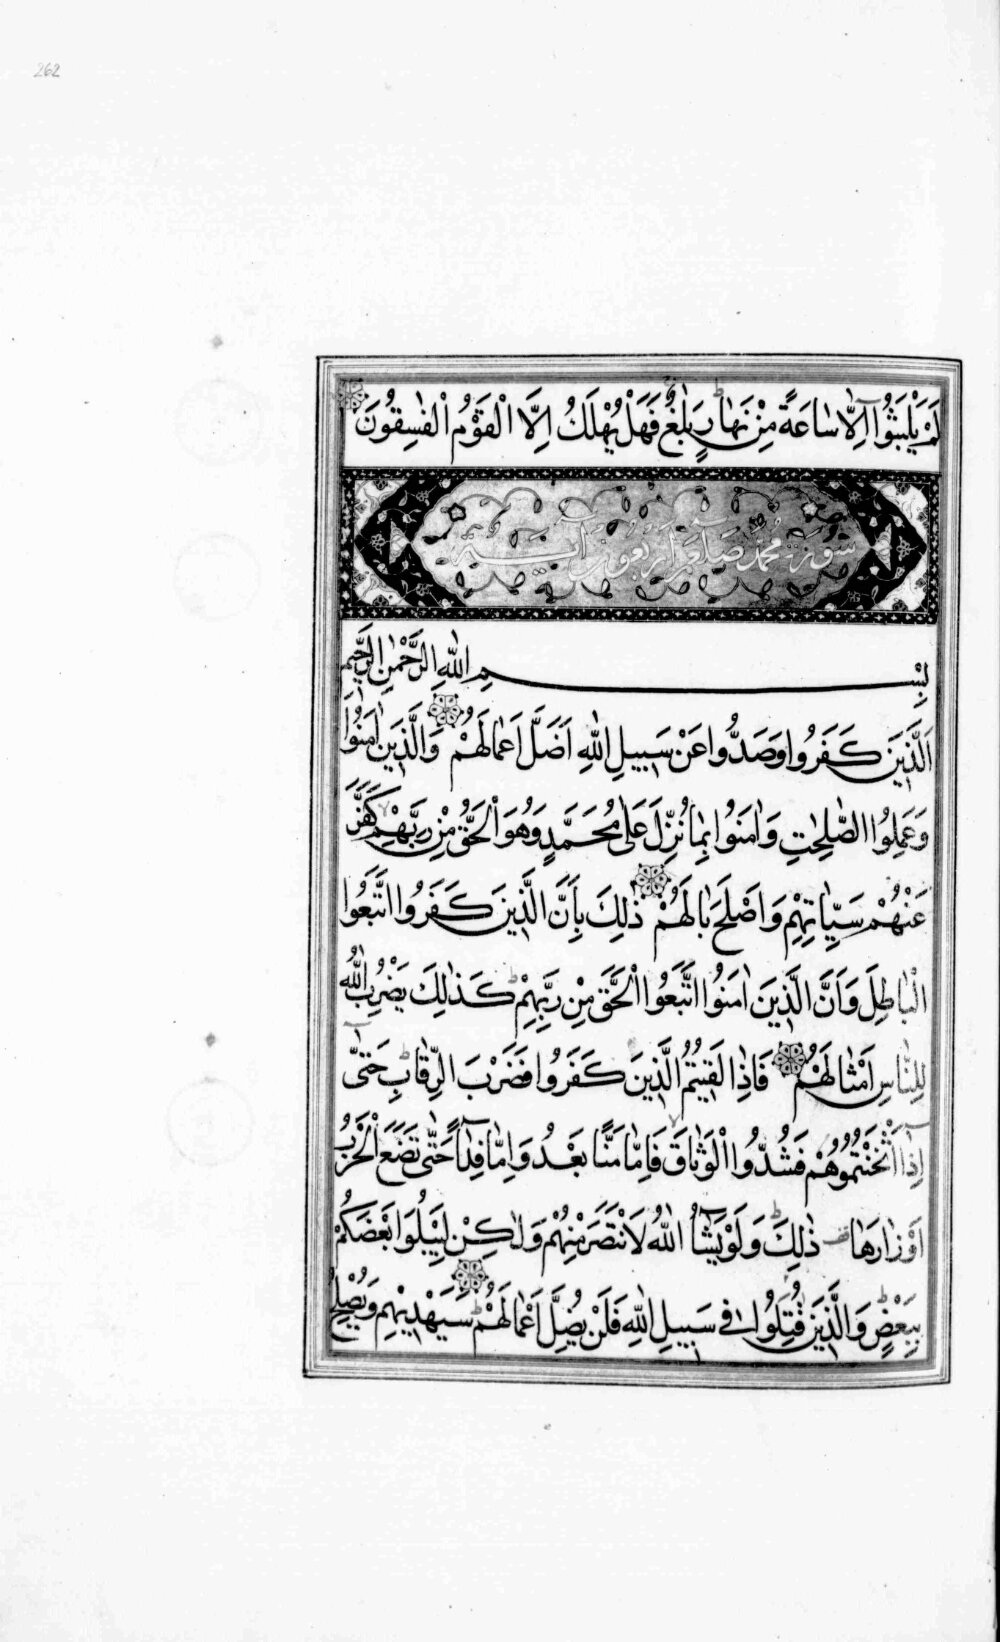 262
لَمْ يَلْبَثُوٓا اِلَّا سَاعَةً مِنْ نَهَارٍ بَلَاغٌ فَهَلْ يُهْلَكُ اِلَّا الْقَوْمُ الْفٰسِقُونَ
سورة محمد صلعم اربعون آية
بِسْمِ اللّٰهِ الرَّحْمٰنِ الرَّحِيمِ
اَلَّذِينَ كَفَرُوا وَصَدُّوا عَنْ سَبِيلِ اللّٰهِ اَضَلَّ اَعْمَالَهُمْ وَالَّذِينَ اٰمَنُوا
وَعَمِلُوا الصّٰلِحٰتِ وَاٰمَنُوا بِمَا نُزِّلَ عَلٰى مُحَمَّدٍ وَهُوَ الْحَقُّ مِنْ رَبِّهِمْ كَفَّرَ
عَنْهُمْ سَيِّاٰتِهِمْ وَاَصْلَحَ بَالَهُمْ ذٰلِكَ بِاَنَّ الَّذِينَ كَفَرُوا اتَّبَعُوا
الْبَاطِلَ وَاَنَّ الَّذِينَ اٰمَنُوا اتَّبَعُوا الْحَقَّ مِنْ رَبِّهِمْ كَذٰلِكَ يَضْرِبُ اللّٰهُ
لِلنَّاسِ اَمْثَالَهُمْ فَاِذَا لَقِيتُمُ الَّذِينَ كَفَرُوا فَضَرْبَ الرِّقَابِ حَتّٰٓى
اِذَٓا اَثْخَنْتُمُوهُمْ فَشُدُّوا الْوَثَاقَ فَاِمَّا مَنًّا بَعْدُ وَاِمَّا فِدَٓاءً حَتّٰى تَضَعَ الْحَرْبُ
اَوْزَارَهَا ذٰلِكَ وَلَوْ يَشَٓاءُ اللّٰهُ لَانْتَصَرَ مِنْهُمْ وَلٰكِنْ لِيَبْلُوَا بَعْضَكُمْ
بِبَعْضٍ وَالَّذِينَ قُتِلُوا فِى سَبِيلِ اللّٰهِ فَلَنْ يُضِلَّ اَعْمَالَهُمْ سَيَهْدِيهِمْ وَيُصْلِحُ